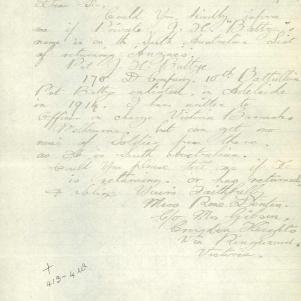 Dear Sir,
Could You kindly inform
me if Private J. H. Battye
name is on the South Australian list
of returning Anzacs.
Pte J. H. Battye
170 D Company, 10th Battalion
Pte Battye enlisted in Adelaide
in 1914. I have written to
Officer in charge Victoria Barracks
Melbourne. but can get no
news of Soldier from there.
as he is South Australian.
Could You please tell me if he
is returning. or has returned
Yours Faithfully
Miss Rose
C/o Mrs Gibson.
Croydon Heights
Via Ringwood.
Victoria.